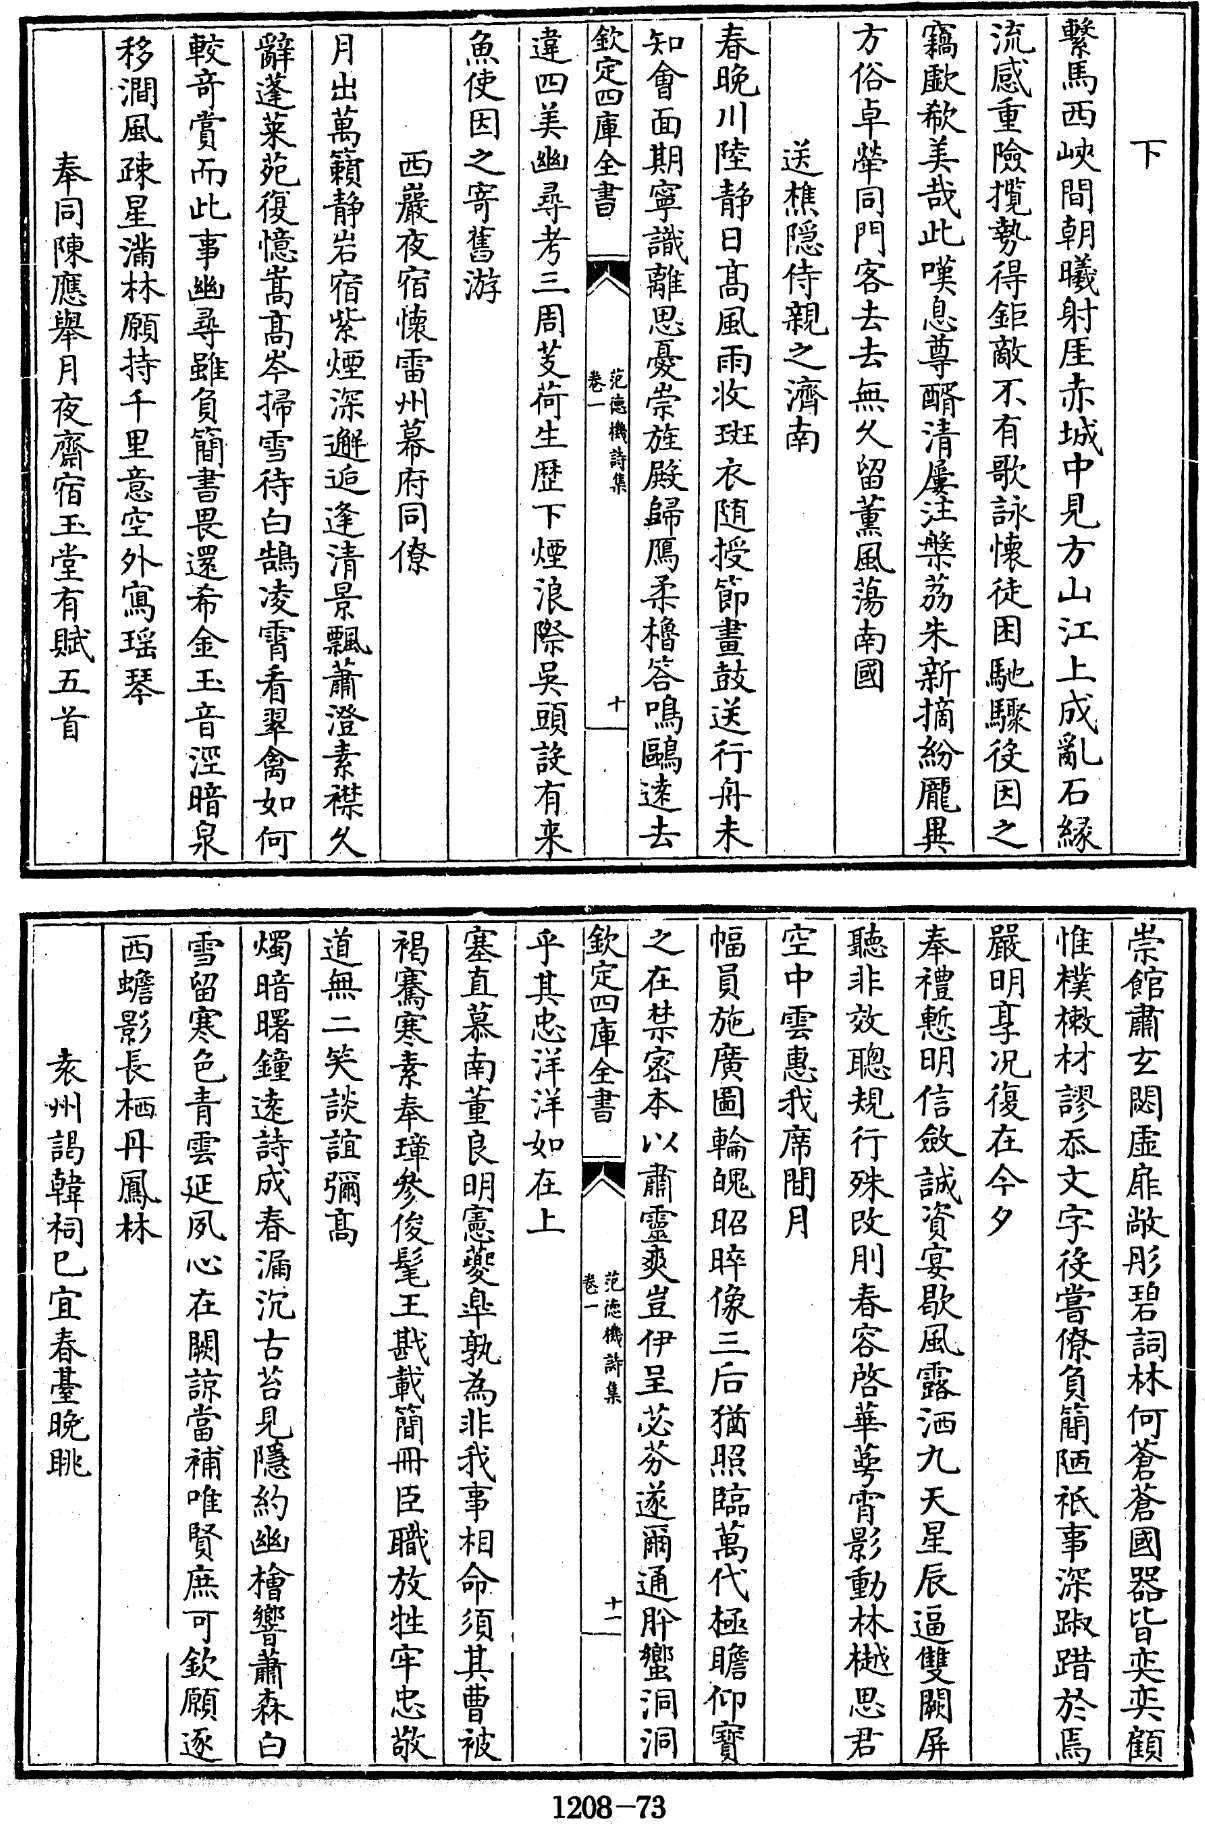 下
繫馬西峽間朝曦射厓赤城中見方山江上成亂石縁
流感重險攬勢得鉅敵不有歌詠懷徒困馳驟役因之
竊歔欷美哉此嘆息尊醑清屢注槃荔朱新摘紛厖異
方俗卓犖同門客去去無久留薰風蕩南國
送樵隠侍親之濟南
春晩川陸静日髙風雨收斑衣随授節畫鼓送行舟未
知會面期寧識離思憂崇旌殿歸鴈柔櫓答鳴鷗逺去
欽定四庫全書
范德機詩集
卷一
十
違四美幽尋考三周芰荷生歴下煙浪際吳頭設有来
魚使因之寄舊游
西巖夜宿懷雷州幕府同僚
月出萬籟静岩宿紫煙深邂逅逢清景飄蕭澄素襟久
辭蓬萊苑復憶嵩髙岑掃雪待白鵠凌霄看翠禽如何
較竒賞而此事幽尋雖負簡書畏還希金玉音澀暗泉
移澗風疎星滿林願持千里意空外寫瑶琴
奉同陳應舉月夜齋宿玉堂有賦五首
崇館肅玄閟虛扉敞彤碧詞林何蒼蒼國器皆奕奕顧
惟樸樕材謬忝文字役嘗僚負簡陋祇事深踧踖於焉
嚴明享况復在今夕
奉禮慙明信斂誠資宴歇風露洒九天星辰逼雙闕屏
聽非效聰規行殊改刖春容啓華萼宵影動林樾思君
空中雲惠我席間月
幅員施廣圖輪魄昭晬像三后猶照臨萬代極瞻仰寳
之在禁宻本以肅靈爽豈伊呈苾芬遂爾通肸蠁洞洞
欽定四庫全書
范德機詩集
卷一
十一
乎其忠洋洋如在上
塞直慕南董良明憲夔臯孰為非我事相命須其曹被
褐騫寒素奉璋參俊髦王戡載簡冊臣職放牲牢忠敬
道無二笑談誼彌髙
燭暗曙鐘逺詩成春漏沉古苔見隱約幽檜響蕭森白
雪留寒色青雲延夙心在闕諒當補唯賢庶可欽願逐
西蟾影長栖丹鳳林
袁州謁韓祠已宜春臺晚眺
1208-73